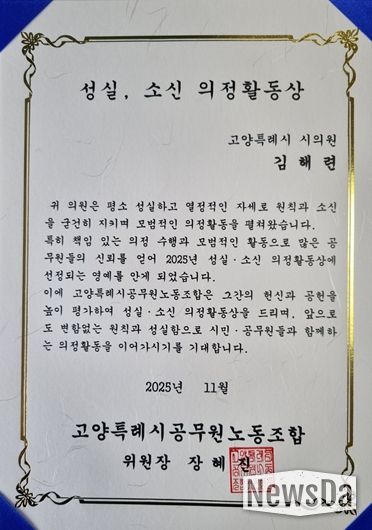 성실, 소신 의정활동상
고양특례시 시의원
김 해 련
귀 의원은 평소 성실하고 열정적인 자세로 원칙과 소신
을 굳건히 지키며 모범적인 의정활동을 펼쳐왔습니다.
특히 책임 있는 의정 수행과 모범적인 활동으로 많은 공
무원들의 신뢰를 얻어 2025년 성실·소신 의정활동상에
선정되는 영예를 안게 되었습니다.
이에 고양특례시공무원노동조합은 그간의 헌신과 공헌을
높이 평가하여 성실·소신 의정활동상을 드리며, 앞으로
도 변함없는 원칙과 성실함으로 시민·공무원들과 함께하
는 의정활동을 이어가시기를 기대합니다.
2025년 11월
고양특례시공무원노동조합
위원장 장 혜 진
NewsDa